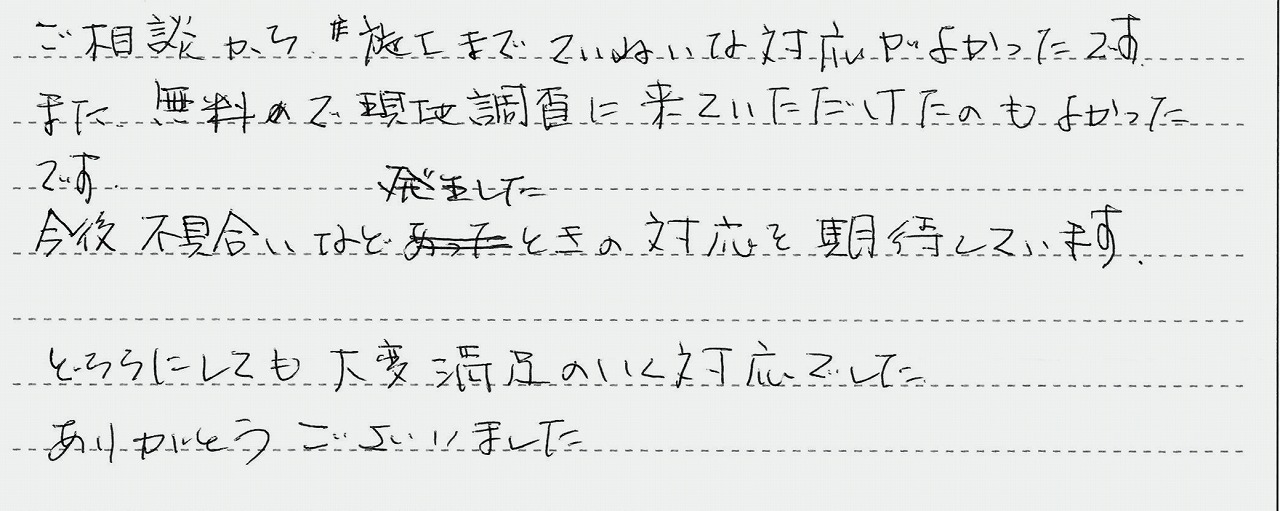 ご相談から施工までていねいな対応がよかったです
また、無料ので現地調査に来ていただけたのもよかった
です.
発生した
今後不具合いなどときの対応を期待しています.
どちらにしても大変満足のいく対応でした
ありがとうございました